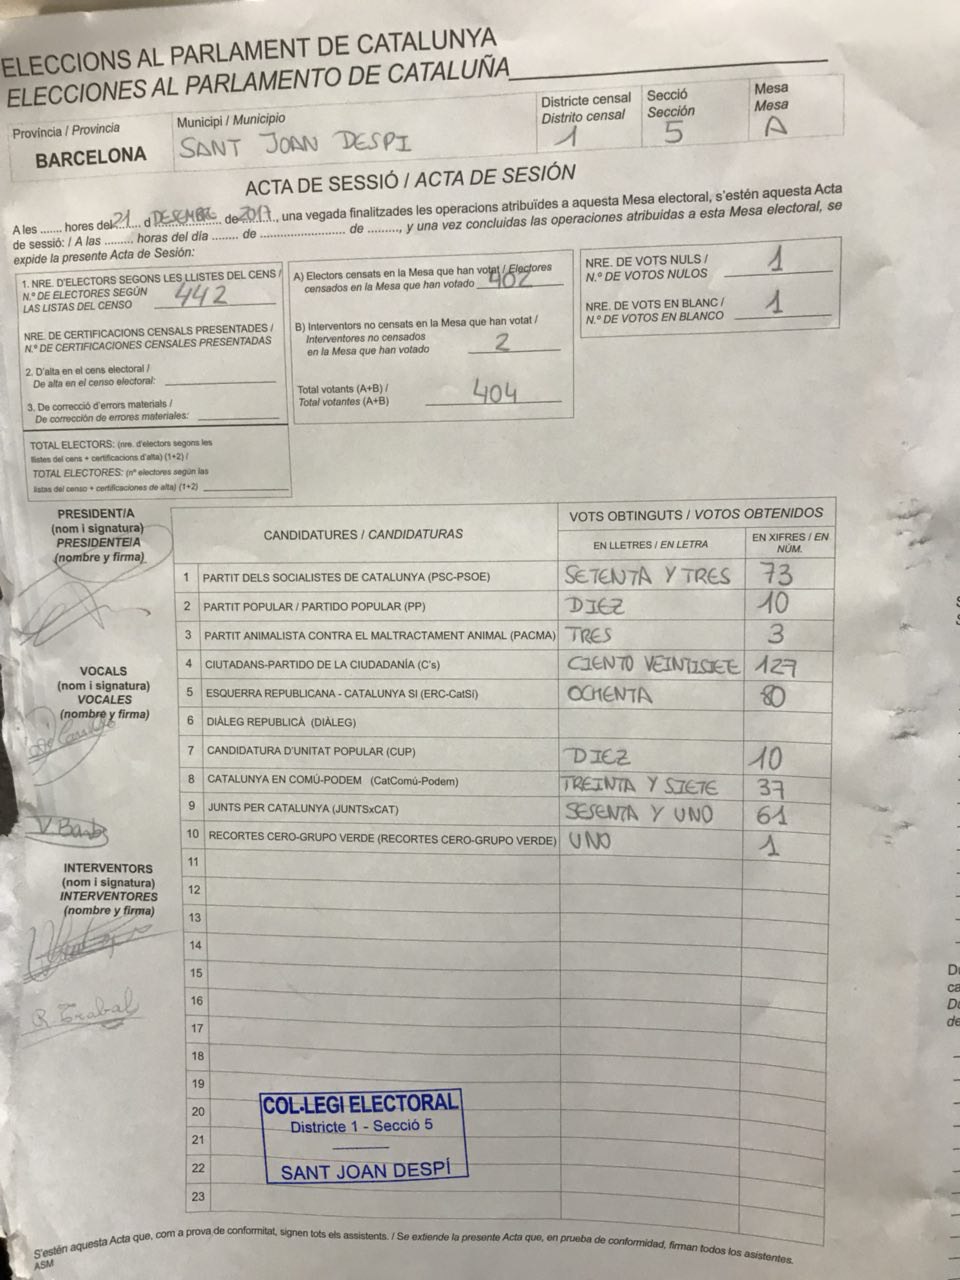 ELECCIONS AL PARLAMENT DE CATALUNYA
ELECCIONES AL PARLAMENTO DE CATALUÑA
Provincia / Provincia
BARCELONA
Municipi / Municipio
SANT JOAN DESPI
Districte censal
Distrito censal
1
Secció
Sección
5
Mesa
Mesa
A
ACTA DE SESSIÓ / ACTA DE SESIÓN
A les ....... hores del 21 d DESEMBRE de 2017, una vegada finalitzades les operacions atribuïdes a aquesta Mesa electoral, s'estén aquesta Acta
de sessió: / A las ......... horas del día ........ de .......................... de ........., y una vez concluidas las operaciones atribuidas a esta Mesa electoral, se
expide la presente Acta de Sesión:
1. NRE. D'ELECTORS SEGONS LES LLISTES DEL CENS /
N.º DE ELECTORES SEGÚN
LAS LISTAS DEL CENSO 442
NRE. DE CERTIFICACIONS CENSALS PRESENTADES /
N.º DE CERTIFICACIONES CENSALES PRESENTADAS
2. D'alta en el cens electoral /
De alta en el censo electoral:
3. De correcció d'errors materials /
De corrección de errores materiales:
TOTAL ELECTORS: (nre. d'electors segons les
llistes del cens + certificacions d'alta) (1+2) /
TOTAL ELECTORES: (nº electores según las
listas del censo + certificaciones de alta) (1+2)
A) Electors censats en la Mesa que han votat / Electores
censados en la Mesa que han votado 402
B) Interventors no censats en la Mesa que han votat /
Interventores no censados
en la Mesa que han votado 2
Total votants (A+B) /
Total votantes (A+B) 404
NRE. DE VOTS NULS /
N.º DE VOTOS NULOS 1
NRE. DE VOTS EN BLANC /
N.º DE VOTOS EN BLANCO 1
PRESIDENT/A
(nom i signatura)
PRESIDENTE/A
(nombre y firma)
VOCALS
(nom i signatura)
VOCALES
(nombre y firma)
INTERVENTORS
(nom i signatura)
INTERVENTORES
(nombre y firma)
R Trabal
CANDIDATURES / CANDIDATURAS
VOTS OBTINGUTS / VOTOS OBTENIDOS
EN LLETRES / EN LETRA
EN XIFRES / EN
NÚM.
1 PARTIT DELS SOCIALISTES DE CATALUNYA (PSC-PSOE) SETENTA Y TRES 73
2 PARTIT POPULAR / PARTIDO POPULAR (PP) DIEZ 10
3 PARTIT ANIMALISTA CONTRA EL MALTRACTAMENT ANIMAL (PACMA) TRES 3
4 CIUTADANS-PARTIDO DE LA CIUDADANÍA (C's) CIENTO VEINTISIETE 127
5 ESQUERRA REPUBLICANA - CATALUNYA SI (ERC-CatSí) OCHENTA 80
6 DIÀLEG REPUBLICÀ (DIÀLEG)
7 CANDIDATURA D'UNITAT POPULAR (CUP) DIEZ 10
8 CATALUNYA EN COMÚ-PODEM (CatComú-Podem) TREINTA Y SIETE 37
9 JUNTS PER CATALUNYA (JUNTSxCAT) SESENTA Y UNO 61
10 RECORTES CERO-GRUPO VERDE (RECORTES CERO-GRUPO VERDE) UNO 1
11
12
13
14
15
16
17
18
19
20
21
22
23
COL·LEGI ELECTORAL
Districte 1 - Secció 5
SANT JOAN DESPÍ
S'estén aquesta Acta que, com a prova de conformitat, signen tots els assistents. / Se extiende la presente Acta que, en prueba de conformidad, firman todos los asistentes.
ASM